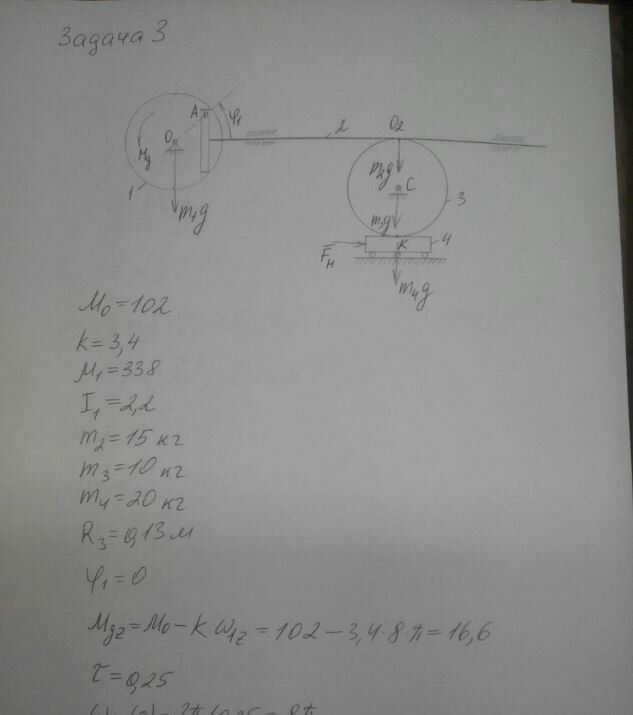 Задача 3
A
φ1
O
Mg
1
m1g
2
O2
m2g
C
3
m3g
K
4
Fн
m4g
M0=102
k=3,4
M1=338
I1=2,2
m2=15 кг
m3=10 кг
m4=20 кг
R3=0,13 м
φ1=0
Mgz=M0-kω1z=102-3,4·8·π=16,6
τ=0,25